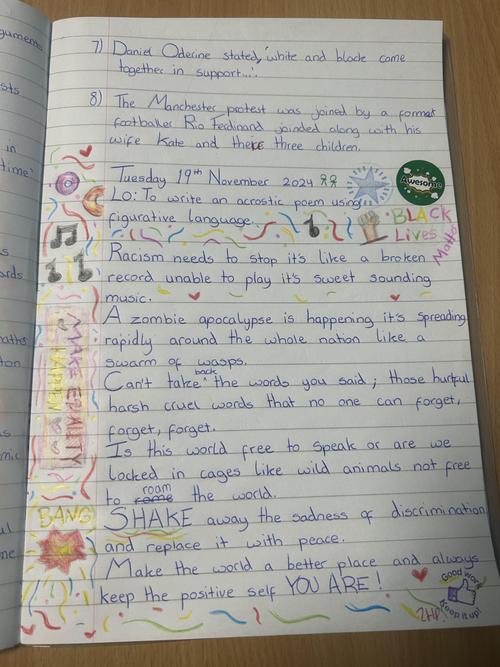 7) Daniel Oderine stated, 'white and black come
together in support...'.
8) The Manchester protest was joined by a former
footballer Rio Ferdinand joinded along with his
wife Kate and there three children.
Tuesday 19th November 2024
Awesome
LO: To write an acrostic poem using
figurative language.
BLACK
LIVES
Matter
Racism needs to stop it's like a broken
record unable to play it's sweet sounding
music.
A zombie apocalypse is happening it's spreading
rapidly around the whole nation like a
swarm of wasps.
Can't take back the words you said; those hurtful
harsh cruel words that no one can forget,
forget, forget.
MAKE EQUALITY
HAPPEN
Is this world free to speak or are we
locked in cages like wild animals not free
to roam the world.
BANG
SHAKE away the sadness of discrimination
and replace it with peace.
Make the world a better place and always
keep the positive self YOU ARE!
Good work
Keep it up!
2HP